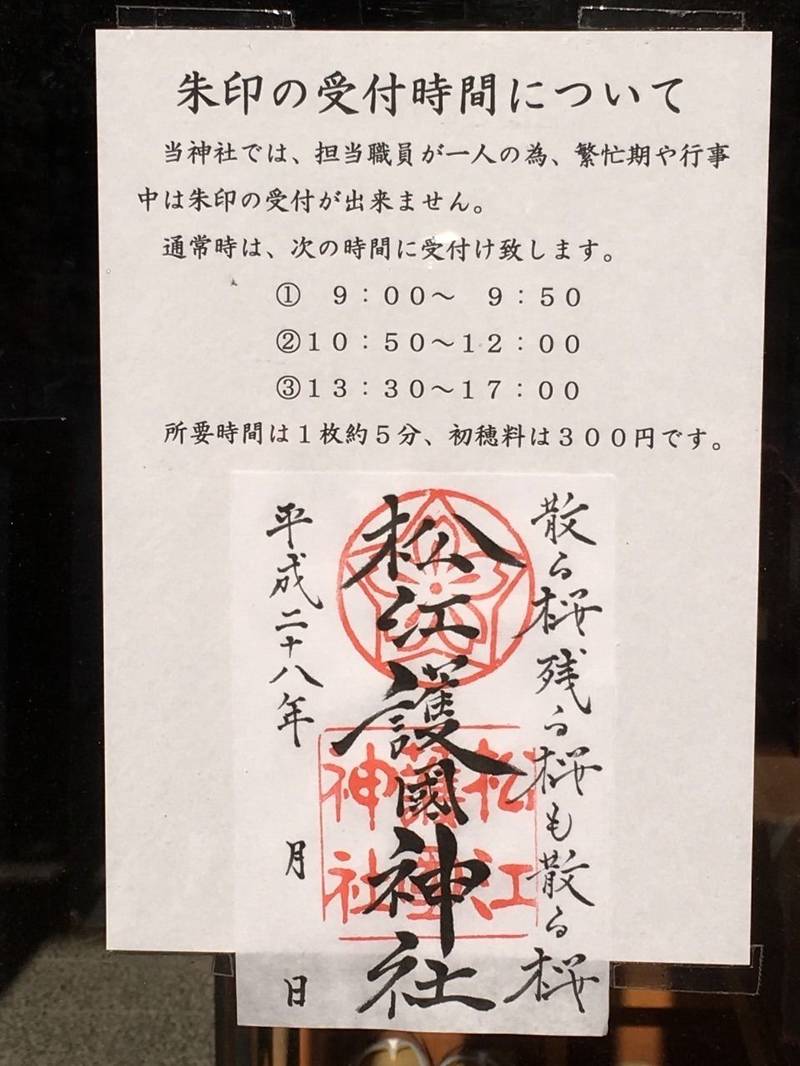 朱印の受付時間について
当神社では、担当職員が一人の為、繁忙期や行事
中は朱印の受付が出来ません。
通常時は、次の時間に受付け致します。
① 9：00〜 9：50
②10：50〜12：00
③13：30〜17：00
所要時間は1枚約5分、初穂料は300円です。
散る桜残る桜も散る桜
松江護國神社
平成二十八年 月 日
松江
護國
神社